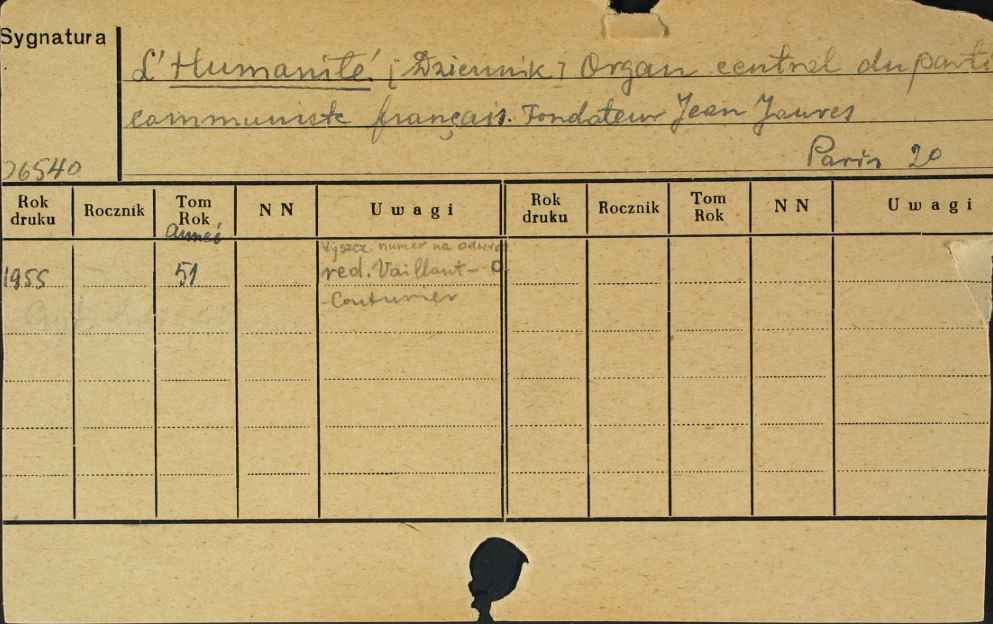 Sygnatura
L'Humanité [Dziennik] Organ central du parti
communiste français. Fondateur Jean Jaures
Paris 20
26540
Rok druku Rocznik Tom Rok NN Uwagi Rok druku Rocznik Tom Rok NN Uwagi
Wyszcz. numer na
1955 51 red. Vaillant-
-Couturier